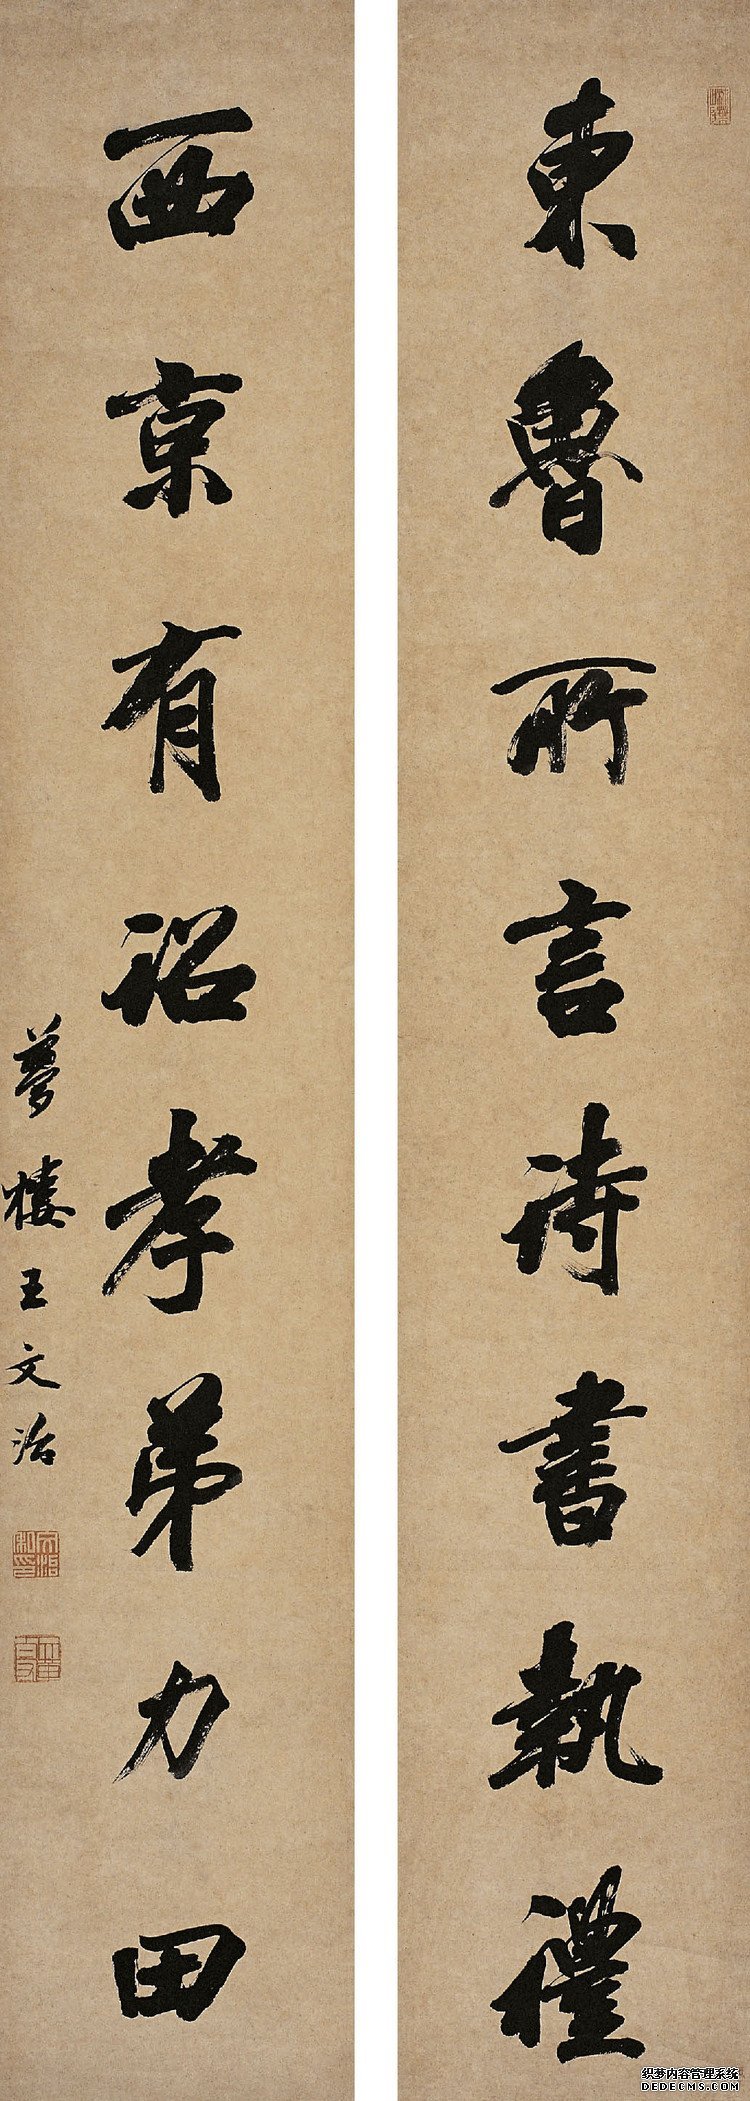 東魯所言詩書執禮
西京有詔孝弟力田
夢樓王文治
织梦内容管理系统
DEDECMS.COM